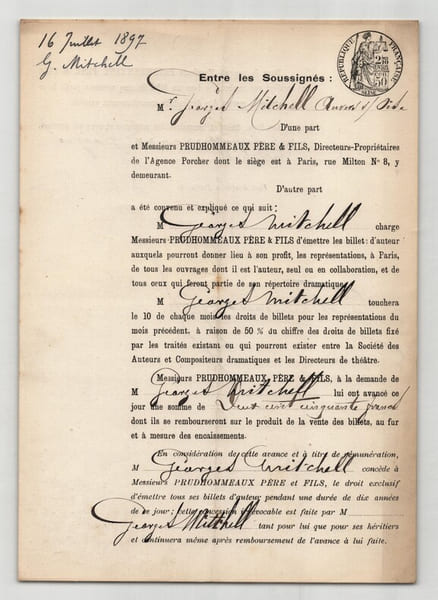 16 Juillet 1897
G. Mitchell
RÉPUBLIQUE FRANÇAISE
Entre les Soussignés :
Mr Georges Mitchell Auvers s/ Oise
D'une part
et Messieurs PRUDHOMMEAUX PÈRE & FILS, Directeurs-Propriétaires
de l'Agence Porcher dont le siège est à Paris, rue Milton No 8, y
demeurant.
D'autre part
a été convenu et expliqué ce qui suit :
M Georges Mitchell charge
Messieurs PRUDHOMMEAUX PÈRE & FILS d'émettre les billet: d'auteur
auxquels pourront donner lieu à son profit, les représentations, à Paris,
de tous les ouvrages dont il est l'auteur, seul ou en collaboration, et de
tous ceux qui feront partie de son répertoire dramatique.
M Georges Mitchell touchera
le 10 de chaque mois les droits de billets pour les représentations du
mois précédent. à raison de 50 % du chiffre des droits de billets fixé
par les traités existant ou qui pourront exister entre la Société des
Auteurs et Compositeurs dramatiques et les Directeurs de théâtre.
Messieurs PRUDHOMMEAUX, PÈRE & FILS, à la demande de
M Georges Mitchell lui ont avancé ce
jour une somme de Deux cent cinquante francs
dont ils se rembourseront sur le produit de la vente des billets, au fur
et à mesure des encaissements.
En considération de cette avance et à titre de rémunération,
M Georges Mitchell concède à
Messieurs PRUDHOMMEAUX PÈRE ET FILS, le droit exclusif
d'émettre tous ses billets d'auteur pendant une durée de dix années
de ce jour ; cette concession irrévocable est faite par M
Georges Mitchell tant pour lui que pour ses héritiers
et continuera même après remboursement de l'avance à lui faite.